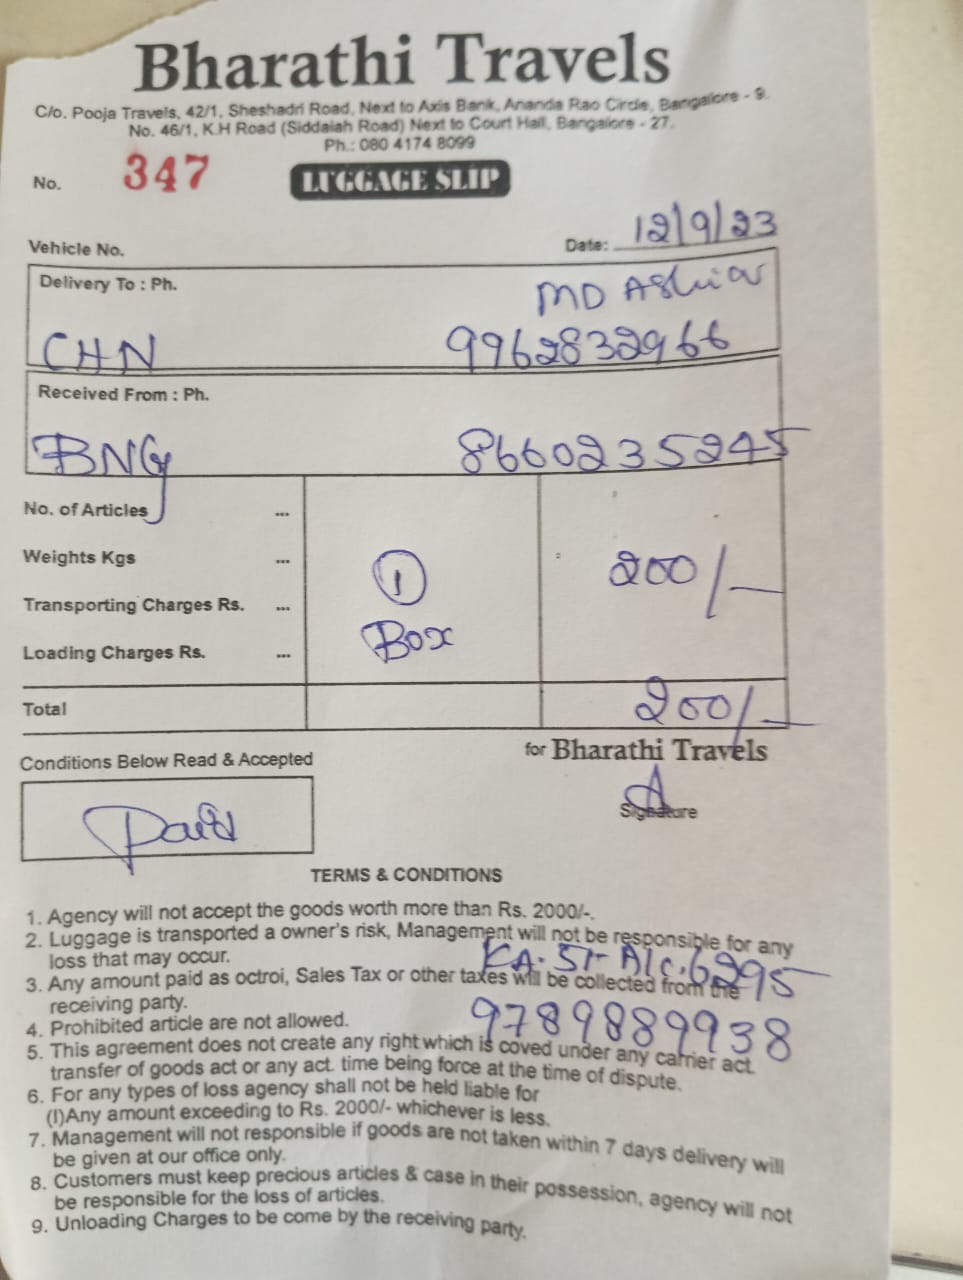 Bharathi Travels
C/o. Pooja Travels, 42/1, Sheshadri Road, Next to Axis Bank, Ananda Rao Circle, Bangalore - 9.
No. 46/1, K.H Road (Siddaiah Road) Next to Court Hall, Bangalore - 27.
Ph.: 080 4174 8099
No. 347 LUGGAGE SLIP
Vehicle No. Date: 12/9/23
Delivery To : Ph. MD
CHN 9962832966
Received From : Ph.
BNG 8660235245
No. of Articles ...
Weights Kgs ... 1 200/-
Transporting Charges Rs. ...
Loading Charges Rs. ... Box
Total 200/-
Conditions Below Read & Accepted for Bharathi Travels
Paid Signature
TERMS & CONDITIONS
1. Agency will not accept the goods worth more than Rs. 2000/-.
2. Luggage is transported a owner's risk, Management will not be responsible for any
loss that may occur.
KA.51-A/c.6295
3. Any amount paid as octroi, Sales Tax or other taxes will be collected from the
receiving party.
9789889938
4. Prohibited article are not allowed.
5. This agreement does not create any right which is coved under any carrier act.
transfer of goods act or any act. time being force at the time of dispute.
6. For any types of loss agency shall not be held liable for
(I)Any amount exceeding to Rs. 2000/- whichever is less.
7. Management will not responsible if goods are not taken within 7 days delivery will
be given at our office only.
8. Customers must keep precious articles & case in their possession, agency will not
be responsible for the loss of articles.
9. Unloading Charges to be come by the receiving party.